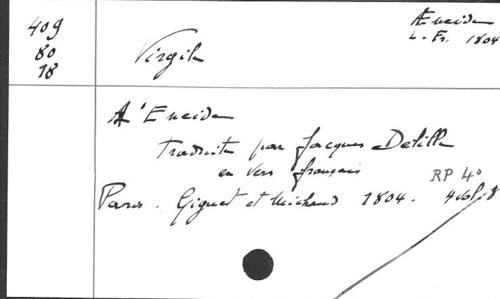 409
80
18
Virgile
Aeneidem
L. Fr. 1804
L'Eneide
Traduite par Jacques Delille
en vers français
RP 4°
Paris. Giguet et Michaud 1804. 4 vol.